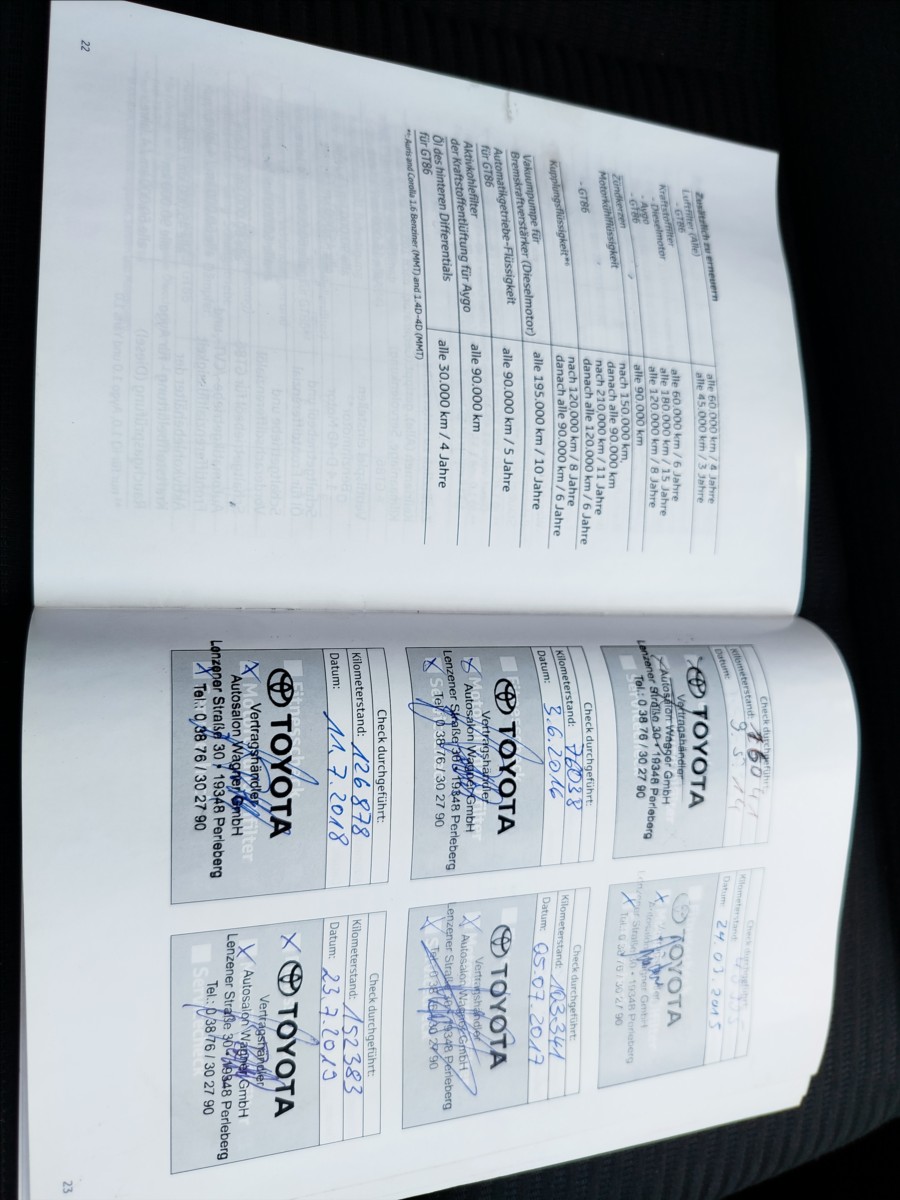 Zusätzlich zu erneuern
Luftfilter (Alle) alle 60.000 km / 4 Jahre
- GT86 alle 45.000 km / 3 Jahre
Kraftstofffilter
- Dieselmotor alle 60.000 km / 6 Jahre
- Aygo alle 180.000 km / 15 Jahre
- GT86 alle 120.000 km / 8 Jahre
Zündkerzen alle 90.000 km
Motorkühlflüssigkeit nach 150.000 km,
danach alle 90.000 km
- GT86 nach 210.000 km / 11 Jahre
danach alle 120.000 km / 6 Jahre
Kupplungsflüssigkeit*⁶ nach 120.000 km / 8 Jahre
danach alle 90.000 km / 6 Jahre
Vakuumpumpe für
Bremskraftverstärker (Dieselmotor) alle 195.000 km / 10 Jahre
Automatikgetriebe-Flüssigkeit
für GT86 alle 90.000 km / 5 Jahre
Aktivkohlefilter
der Kraftstoffentlüftung für Aygo alle 90.000 km
Öl des hinteren Differentials
für GT86 alle 30.000 km / 4 Jahre
*⁶⁾ Auris and Corolla 1.6 Benziner (MMT) and 1.4D-4D (MMT)
22
Check durchgeführt:
Kilometerstand:
Datum:
TOYOTA
Vertragshändler
Autosalon Wagner GmbH
Lenzener Straße 30 • 19348 Perleberg
Tel.: 0 38 76 / 30 27 90
Check durchgeführt:
Kilometerstand:
Datum: 24.03.2015
TOYOTA
Lenzener Straße 30 • 19348 Perleberg
Tel.: 0 38 76 / 30 27 90
Check durchgeführt:
Kilometerstand: 76038
3.6.2016
TOYOTA
Vertragshändler
Autosalon Wagner GmbH
Lenzener Straße 30 • 19348 Perleberg
Tel.: 0 38 76 / 30 27 90
Check durchgeführt:
Kilometerstand: 103341
Datum: 05.07.2017
TOYOTA
Vertragshändler
Autosalon Wagner GmbH
Lenzener Straße 30 • 19348 Perleberg
Tel.: 0 38 76 / 30 27 90
Check durchgeführt:
Kilometerstand: 126878
Datum: 11.7.2018
TOYOTA
Vertragshändler
Autosalon Wagner GmbH
Lenzener Straße 30 • 19348 Perleberg
Tel.: 0 38 76 / 30 27 90
Check durchgeführt:
Kilometerstand: 152383
Datum: 23.7.2019
TOYOTA
Vertragshändler
Autosalon Wagner GmbH
Lenzener Straße 30 • 19348 Perleberg
Tel.: 0 38 76 / 30 27 90
23